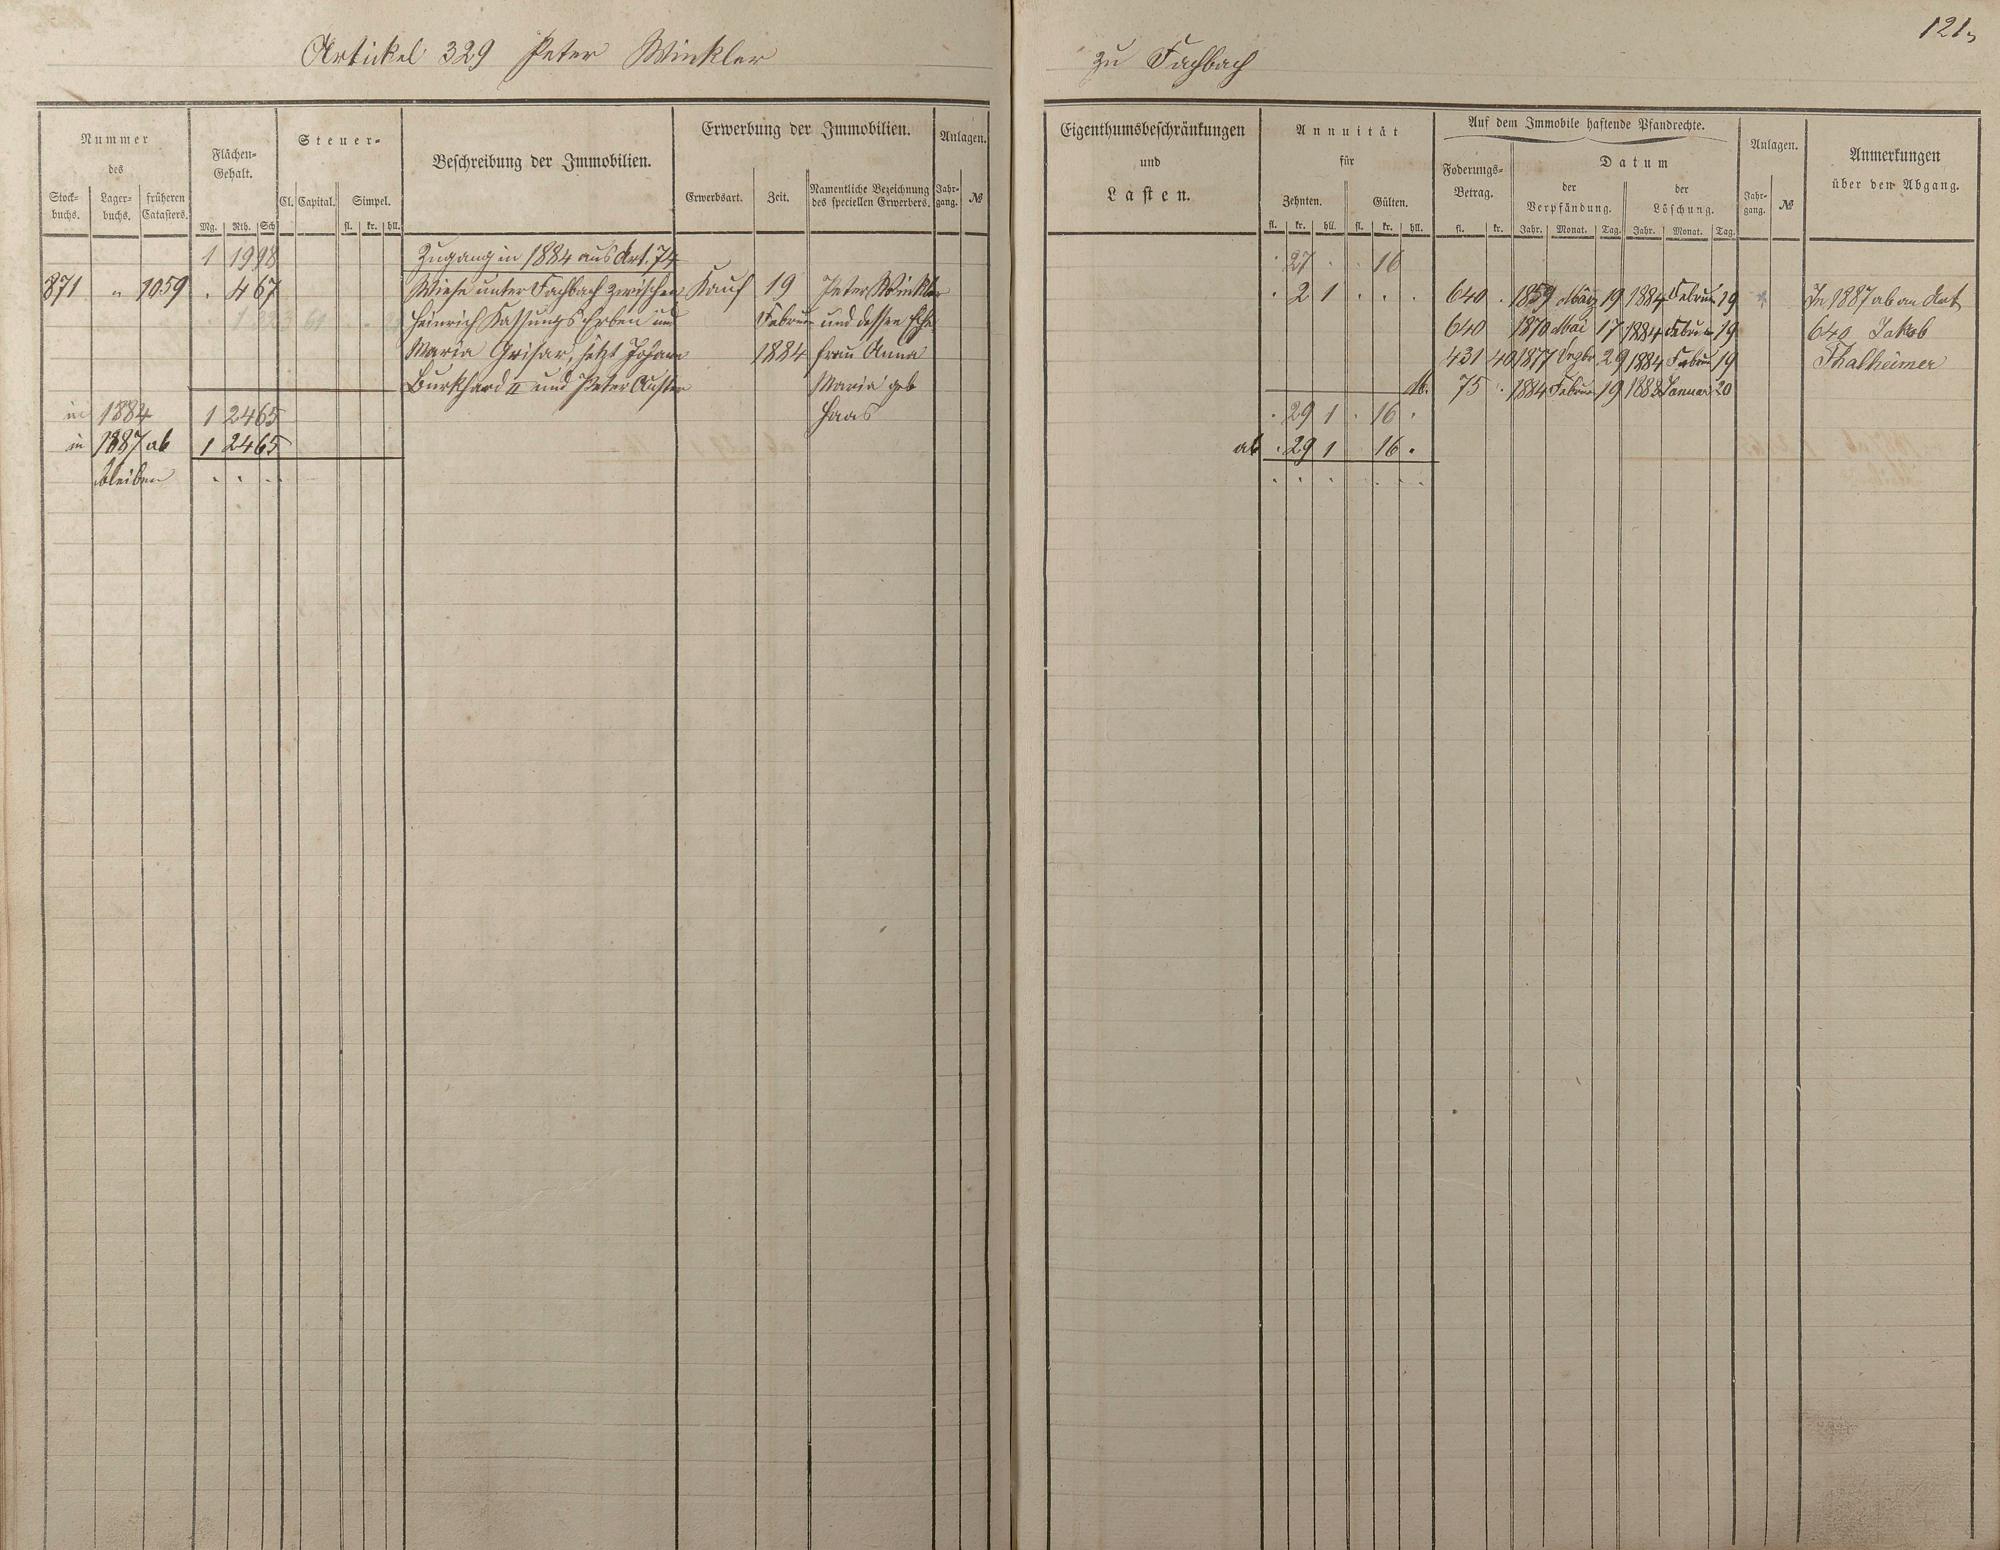 121
Artickel 329 Peter Winkler
zu Fachbach
Nummer
des
Stock-
buchs.
Lager-
buchs.
früheren
Catasters.
Flächen-
Gehalt.
Mg. Rth. Sch
Steuer-
Cl. Capital. Simpel.
fl. kr. hll.
Beschreibung der Immobilien.
Erwerbung der Immobilien.
Erwerbsart. Zeit.
Namentliche Bezeichnung
des speciellen Erwerbers.
Anlagen.
Jahr-
gang. №
1 19 98 Zugang in 1884 aus Art. 74
871 „ 1059 . 4 67 Wiese unter Fachbach zwischen Kauf 19 Peter Winkler
Heinrich Kassungs Erben und Februar und dessen Ehe
Maria Grisar, jetzt Johann 1884 frau Anna
Burkhard II und Peter Maria geb
in 1884 1 24 65 Haas
in 1887 ab 1 24 65
bleiben . . .
Eigenthumsbeschränkungen
und
Lasten.
Annuität
für
Zehnten. Gülten.
fl. kr. hll. fl. kr. hll.
Auf dem Immobile haftende Pfandrechte.
Foderungs-
Betrag.
fl. kr.
Datum
der
Verpfändung.
Jahr. Monat. Tag.
der
Löschung.
Jahr. Monat. Tag.
Anlagen.
Jahr-
gang. №
Anmerkungen
über den Abgang.
. 27 . . 16
. 2 1 . . . 640 . 1859 März 19 1884 Februar 19 In 1887 ab an Art
640 1870 Mai 17 1884 Februar 19 640 Jakob
431 40 1877 Dezbr 29 1884 Februar 19 Thalheimer
M. 75 . 1884 Februar 19 1888 Januar 20
. 29 1 . 16 .
ab . 29 1 16 .
. . . . . .